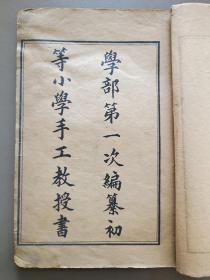 學部第一次編纂初
等小學手工教授書